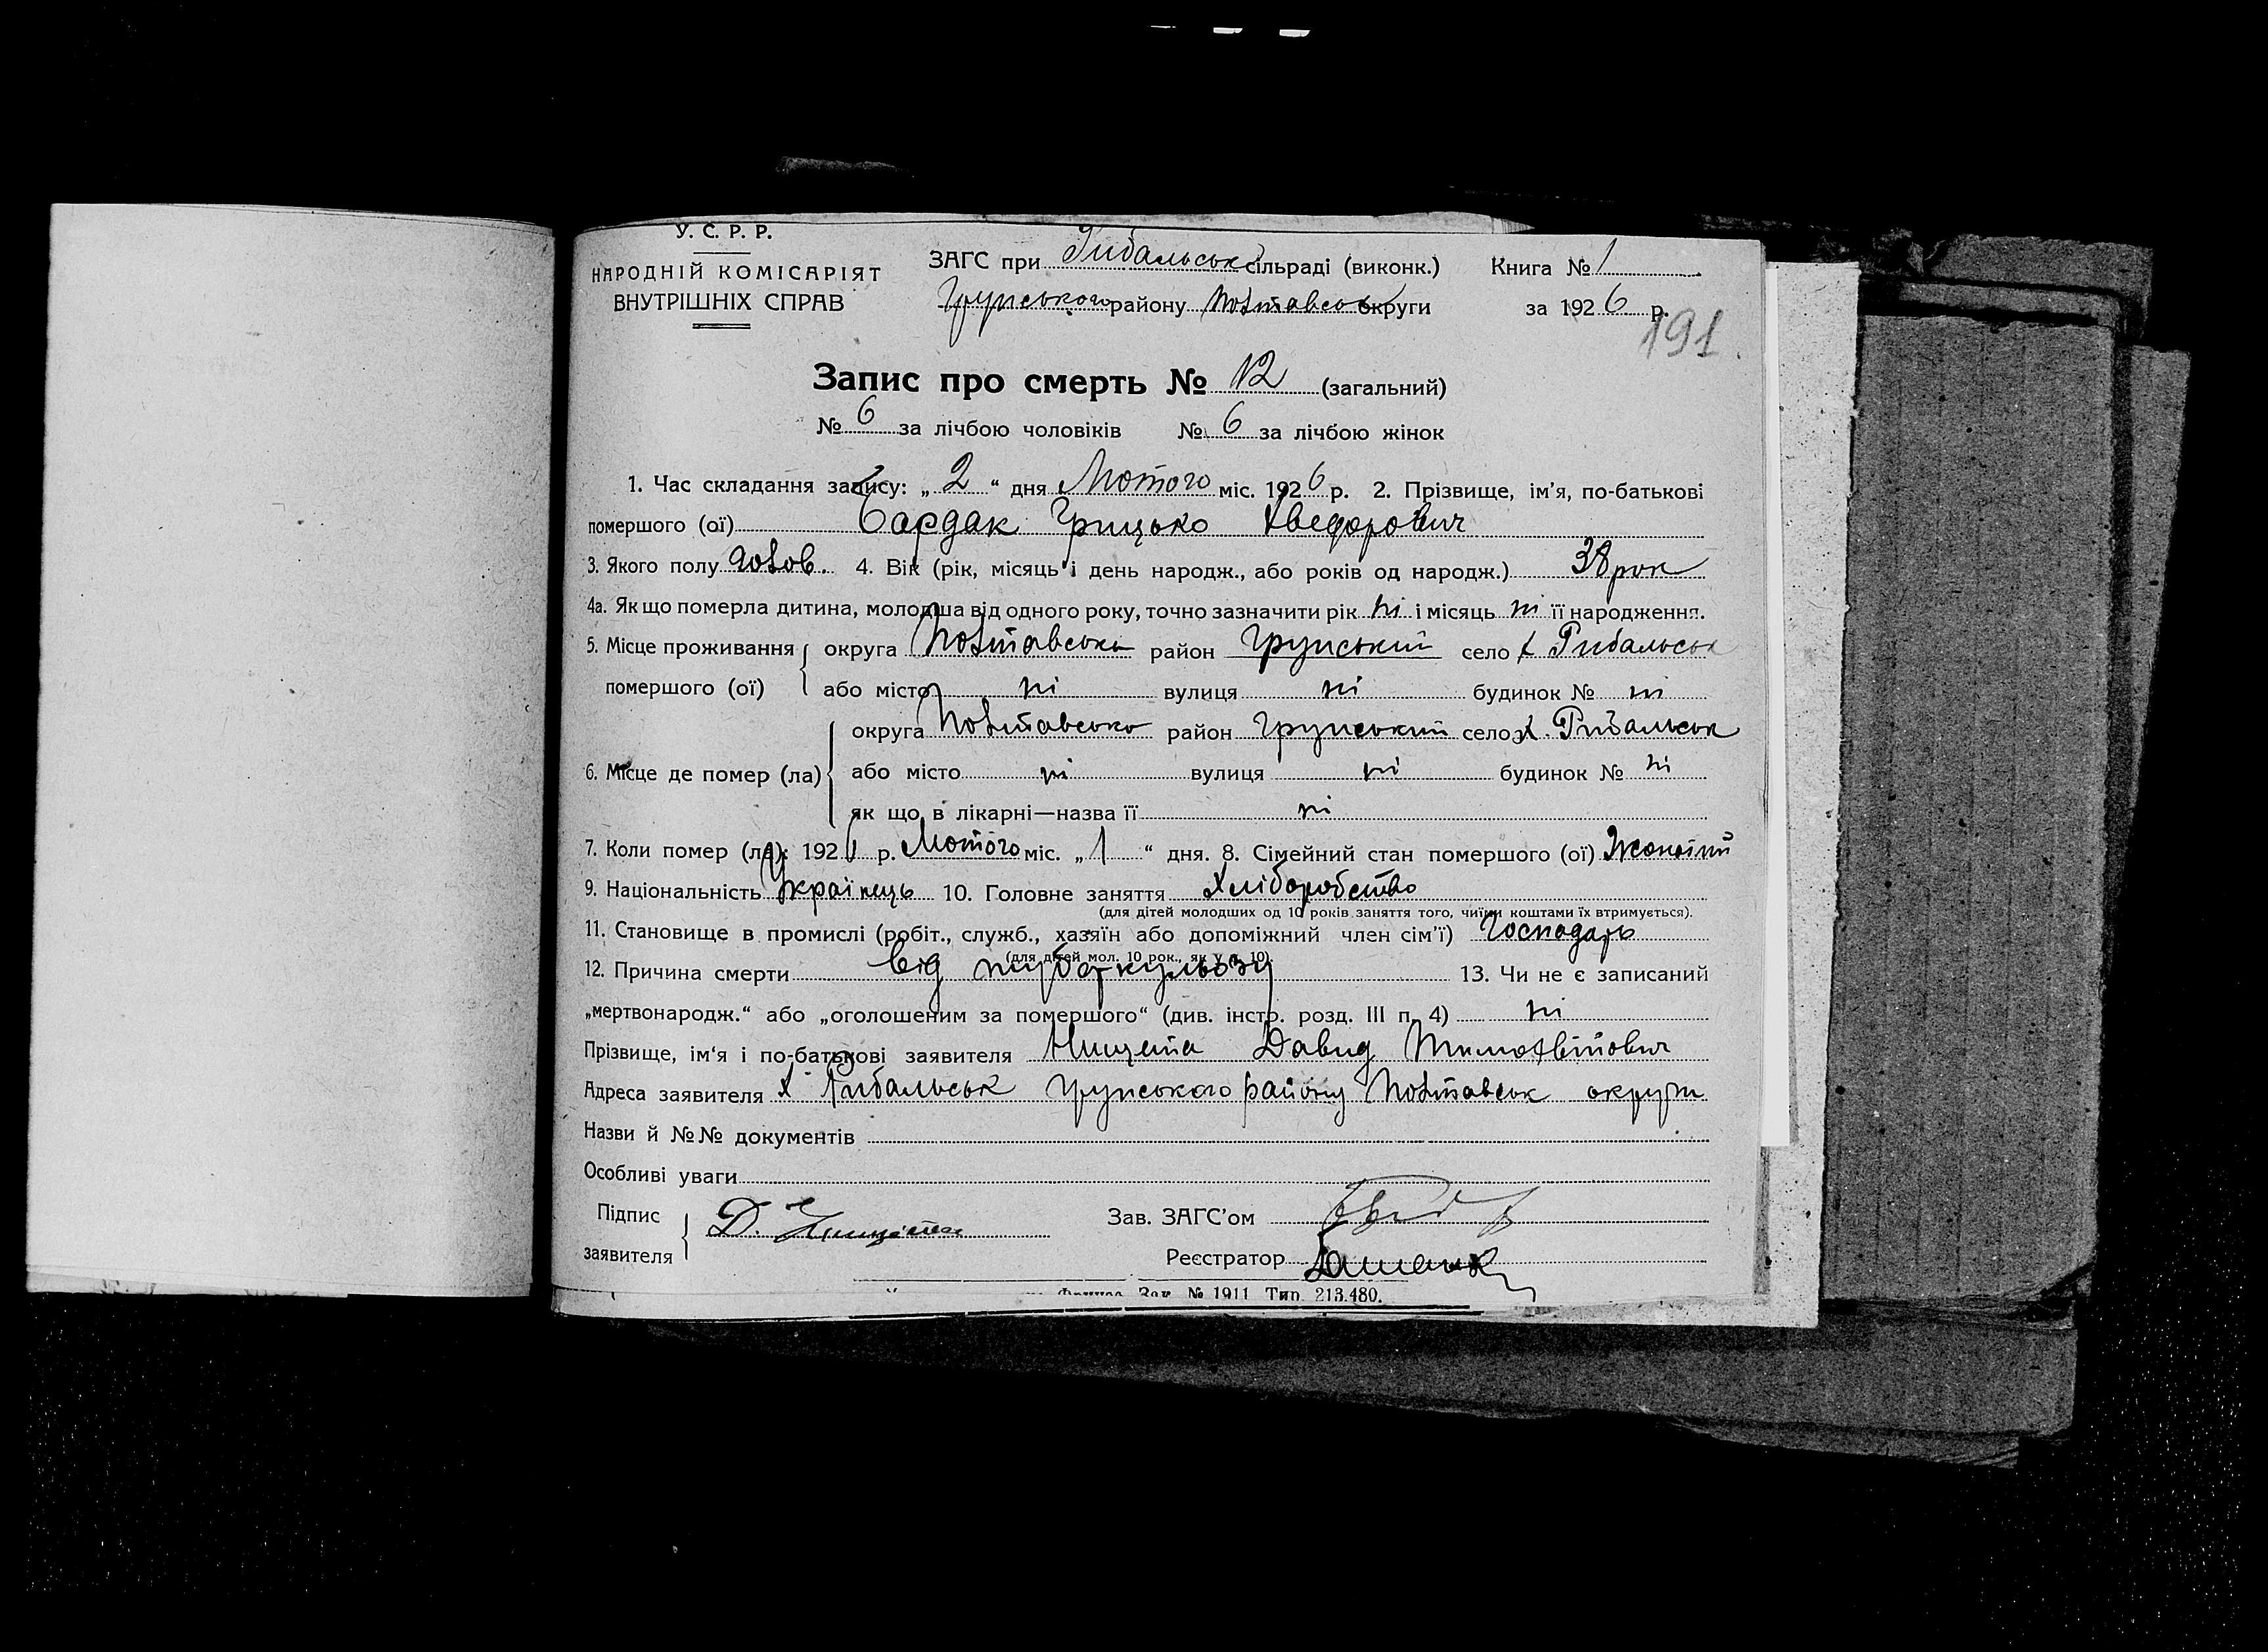 У. С. Р. Р.
НАРОДНІЙ КОМІСАРІЯТ
ВНУТРІШНІХ СПРАВ
ЗАГС при Рибальськ сільраді (виконк.) Книга № 1
Грунського району Полтавськ округи за 1926 р.
191
Запис про смерть № 12 (загальний)
№ 6 за лічбою чоловіків № 6 за лічбою жінок
1. Час складання запису: „2“ дня Лютого міс. 1926 р. 2. Прізвище, ім'я, по-батькові
помершого (ої) Бардак Грицько Хведорович
3. Якого полу чолов. 4. Вік (рік, місяць і день народж., або років од народж.) 38 рок
4а. Як що померла дитина, молодша від одного року, точно зазначити рік ні і місяць ні її народження.
5. Місце проживання помершого (ої) округа Полтавська район Грунський село х Рибальськ
або місто ні вулиця ні будинок № ні
6. Місце де помер (ла) округа Полтавсько район Грунський село х. Рибальськ
або місто ні вулиця ні будинок № ні
як що в лікарні—назва її ні
7. Коли помер (ла): 1926 р. Лютого міс. „1“ дня. 8. Сімейний стан помершого (ої) Жонатий
9. Національність Українець 10. Головне заняття Хліборобство
(для дітей молодших од 10 років заняття того, чиїми коштами їх втримується).
11. Становище в промислі (робіт., служб., хазяїн або допоміжний член сім'ї) Господарь
(для дітей мол. 10 рок., як у п. 10).
12. Причина смерти від туберкульозу 13. Чи не є записаний
„мертвонародж.“ або „оголошеним за помершого“ (див. інстр. розд. III п. 4) ні
Прізвище, ім'я і по-батькові заявителя Нищета Давид Тимохвійович
Адреса заявителя х Рибальськ Грунського району Полтавськ округи
Назви й №№ документів
Особливі уваги
Підпис заявителя Д. Нищета Зав. ЗАГС'ом
Реєстратор
Зак. № 1911 Тир. 213.480.